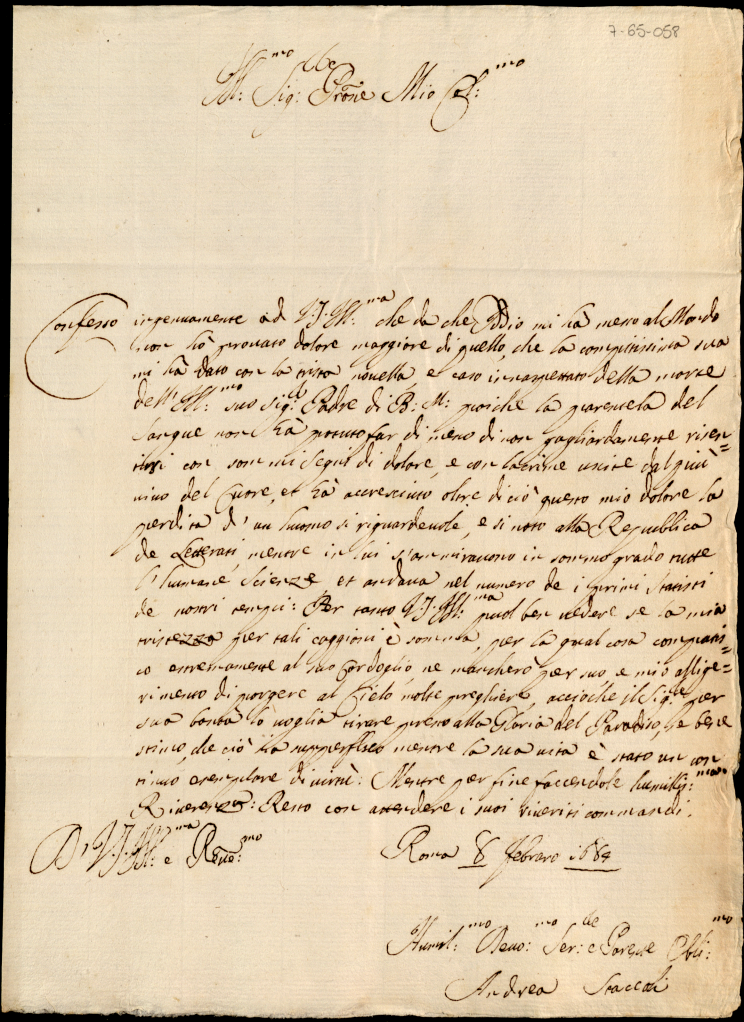 7-65-058
Ill:mo Sig:re Prõne Mio Col:mo
Confesso ingenuamente ad V.S. Ill:ma che da che Iddio mi hà messo al Mondo
non hò prouato dolore maggiore di quello, che la compitissima sua
mi hà dato con la trista nouella, e caso innaspettato della morte
dell' Ill:mo suo Sig:r Padre di B: M: poiche la parentela del
sangue non hà potuto far di meno di non gagliardamente risen=
tirsi con sommi segni di dolore, e con lacrime uscite dal più ui=
uino del Cuore, et hà accresciuto oltre di ciò questo mio dolore la
perdita d' un huomo si riguardeuole, e si noto alla Republica
de Letterati, mentre in lui s'ammirauono in sommo grado tutte
l' humane Scienze et andaua nel numero de i primi statisti
de nostri tempi: Per tanto V.S. Ill:ma puol ben uedere se la mia
tristezza per tali caggioni è somma, per la qual cosa compatis=
co estremamente al suo Cordoglio, ne mancherò per suo e mio allige=
rimento di porgere al Cielo molte preghiere, accioche il Sig:re per
sua bontà lo uoglia tirare presso alla Gloria del Paradiso, se bene
stimo, che ciò sia superfluo mentre la sua uita è stato un con
tinuo esemplare di uirtù: Mentre per fine facendole humilis:ma
Riuerenza: Resto con attendere i suoi riueriti commandi.
Di V.S. Ill:ma e Reue:mo
Roma 8 Febraro 1684
Humil:mo Deuo:mo Ser:re e Parente Obli:mo
Andrea Staccoli